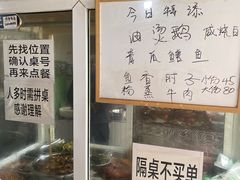 先找位置
确认桌号
再来点餐
人多时需拼桌
感谢理解
今日特添
油烫鹅
黄瓜鳝鱼
鱼香肘子 小份45
粉蒸牛肉 大份80
隔桌不买单